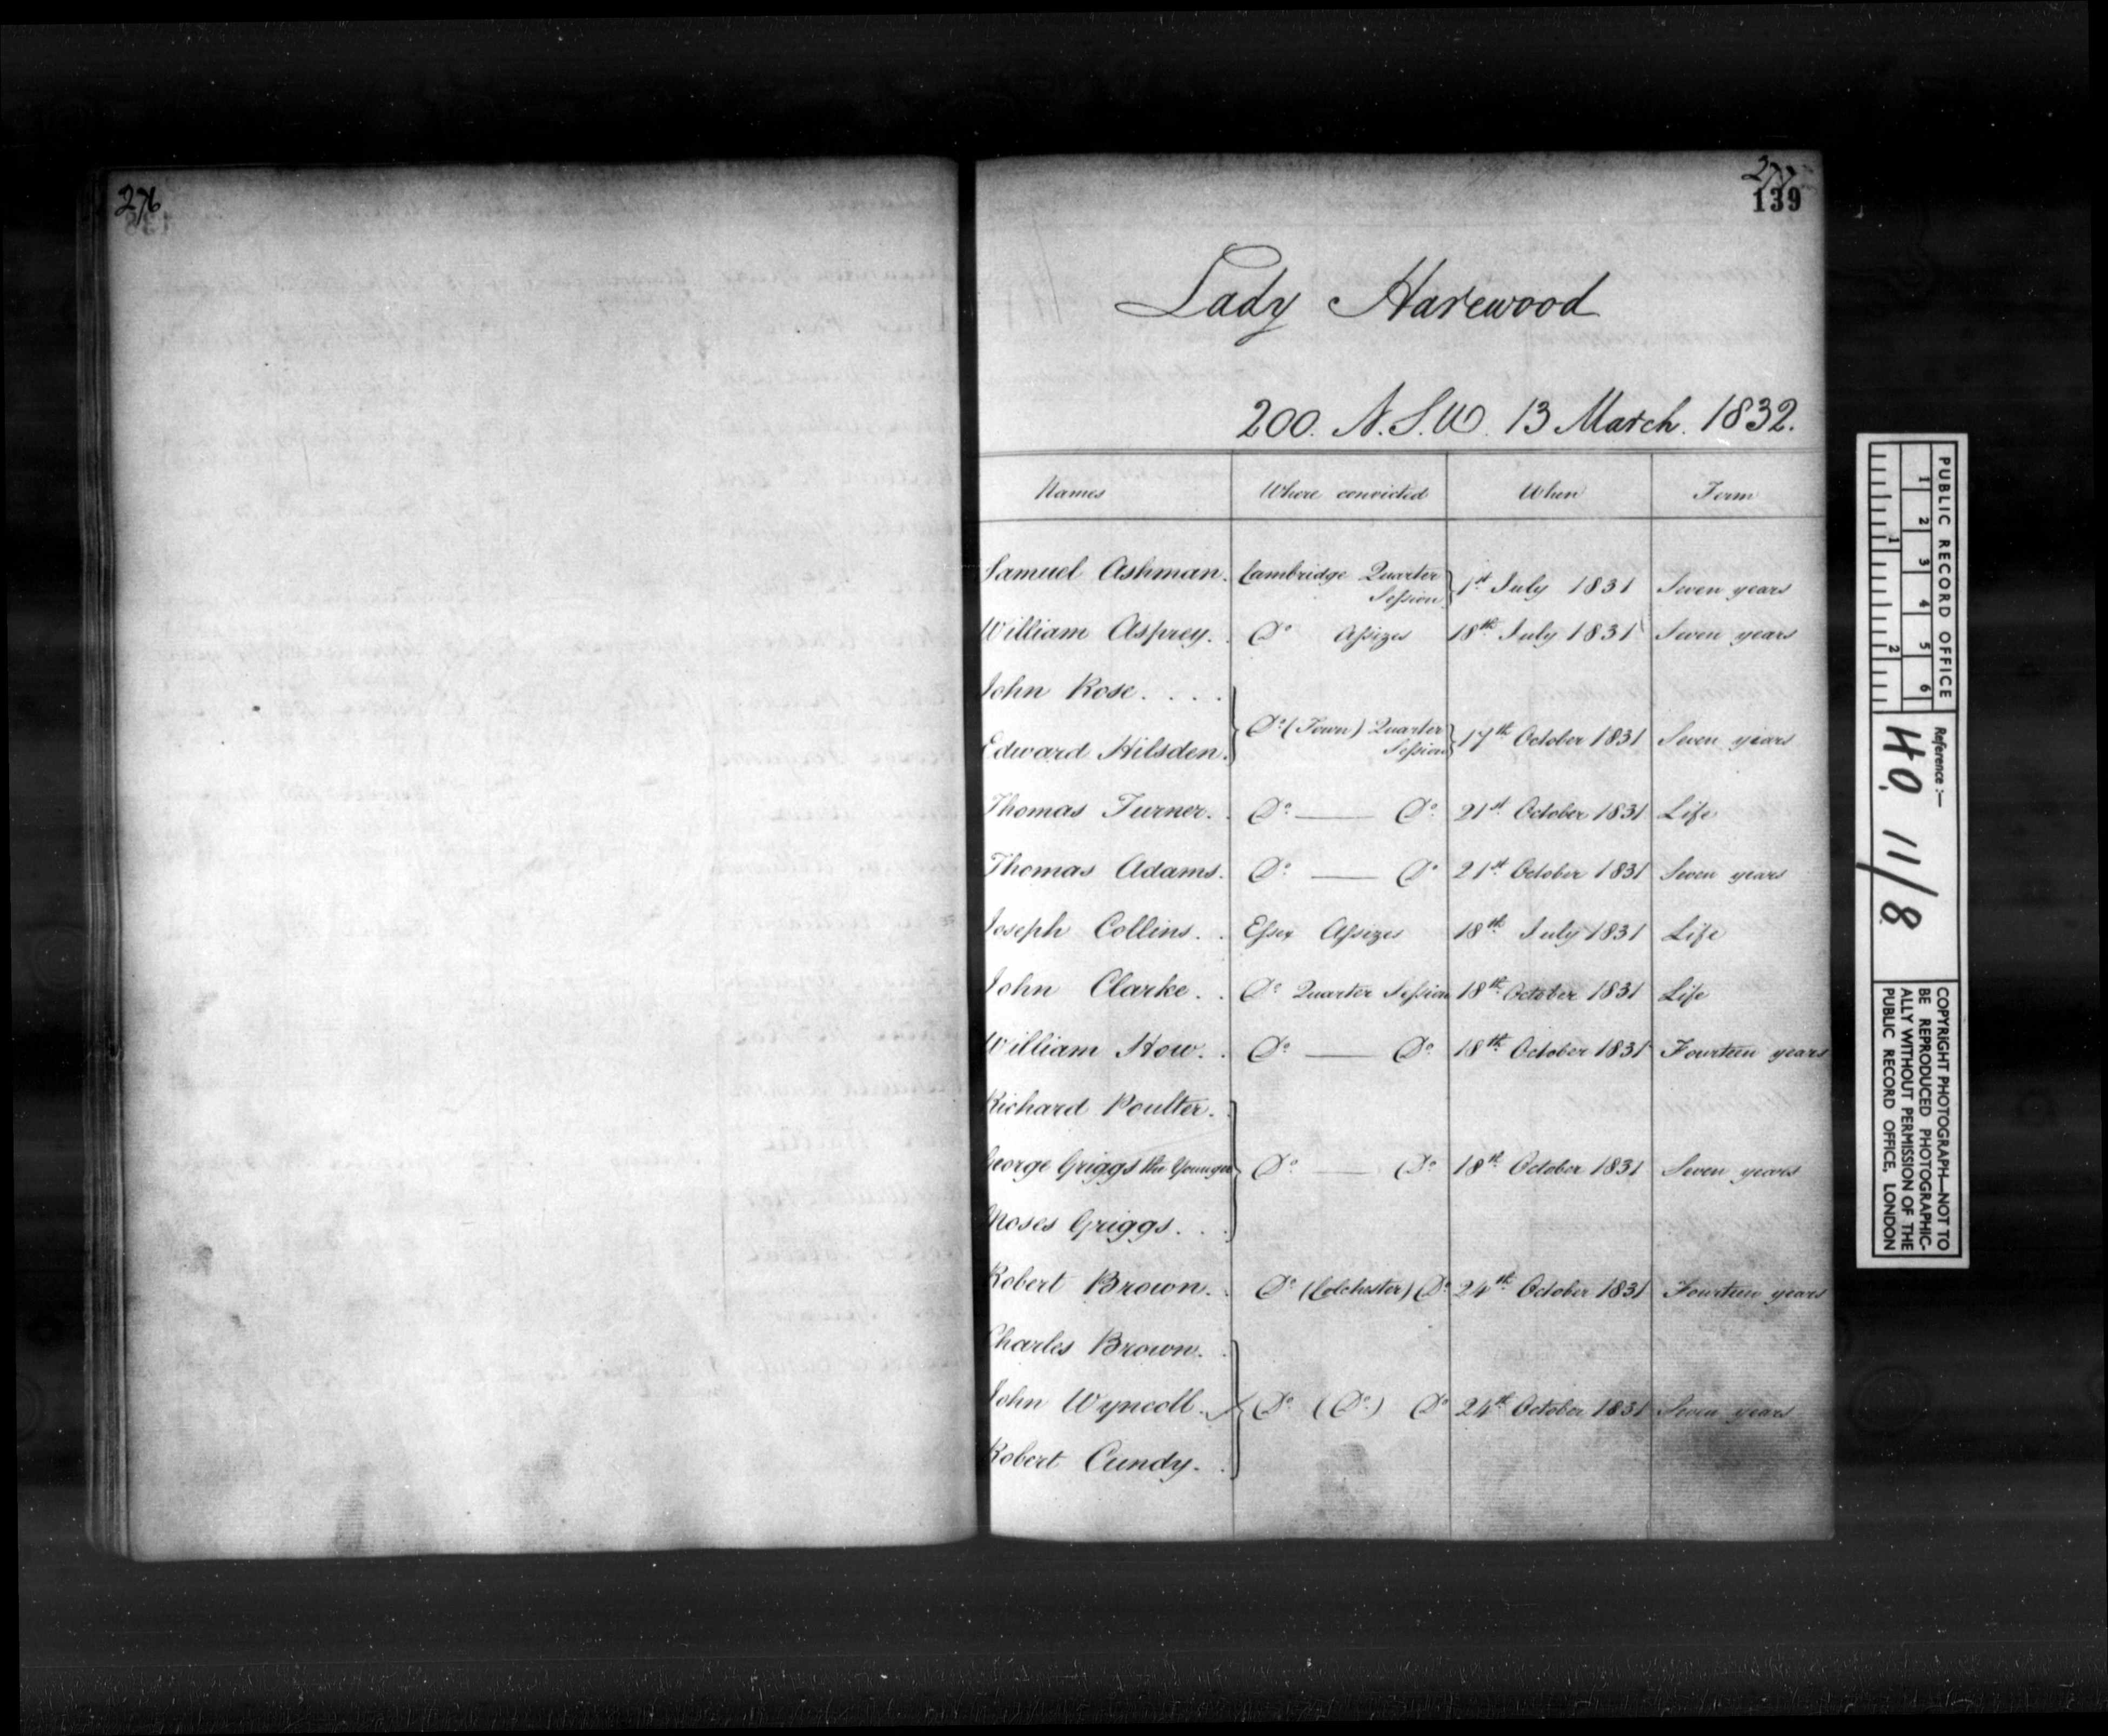 276
277
139
Lady Harewood
200. N.S.W. 13 March. 1832.
Names Where convicted When Term
Samuel Ashman. Cambridge Quarter Session 1st July 1831 Seven years
William Asprey. Do Assizes 18th July 1831 Seven years
John Rose....
Do (Town) Quarter Session 17th October 1831 Seven years
Edward Hilsden.
Thomas Turner. Do — Do 21st October 1831 Life
Thomas Adams. Do — Do 21st October 1831 Seven years
Joseph Collins.. Essex Assizes 18th July 1831 Life
John Clarke.. Do Quarter Session 18th October 1831 Life
William How.. Do — Do 18th October 1831 Fourteen years
Richard Poulter.
George Griggs the Younger Do — Do 18th October 1831 Seven years
Moses Griggs...
Robert Brown.. Do (Colchester) Do 24th October 1831 Fourteen years
Charles Brown..
John Wyncoll. Do (Do) Do 24th October 1831 Seven years
Robert Cundy..
PUBLIC RECORD OFFICE
1 2 3 4 5 6
1 2
Reference :-
HO 11/8
COPYRIGHT PHOTOGRAPH—NOT TO
BE REPRODUCED PHOTOGRAPHIC-
ALLY WITHOUT PERMISSION OF THE
PUBLIC RECORD OFFICE, LONDON